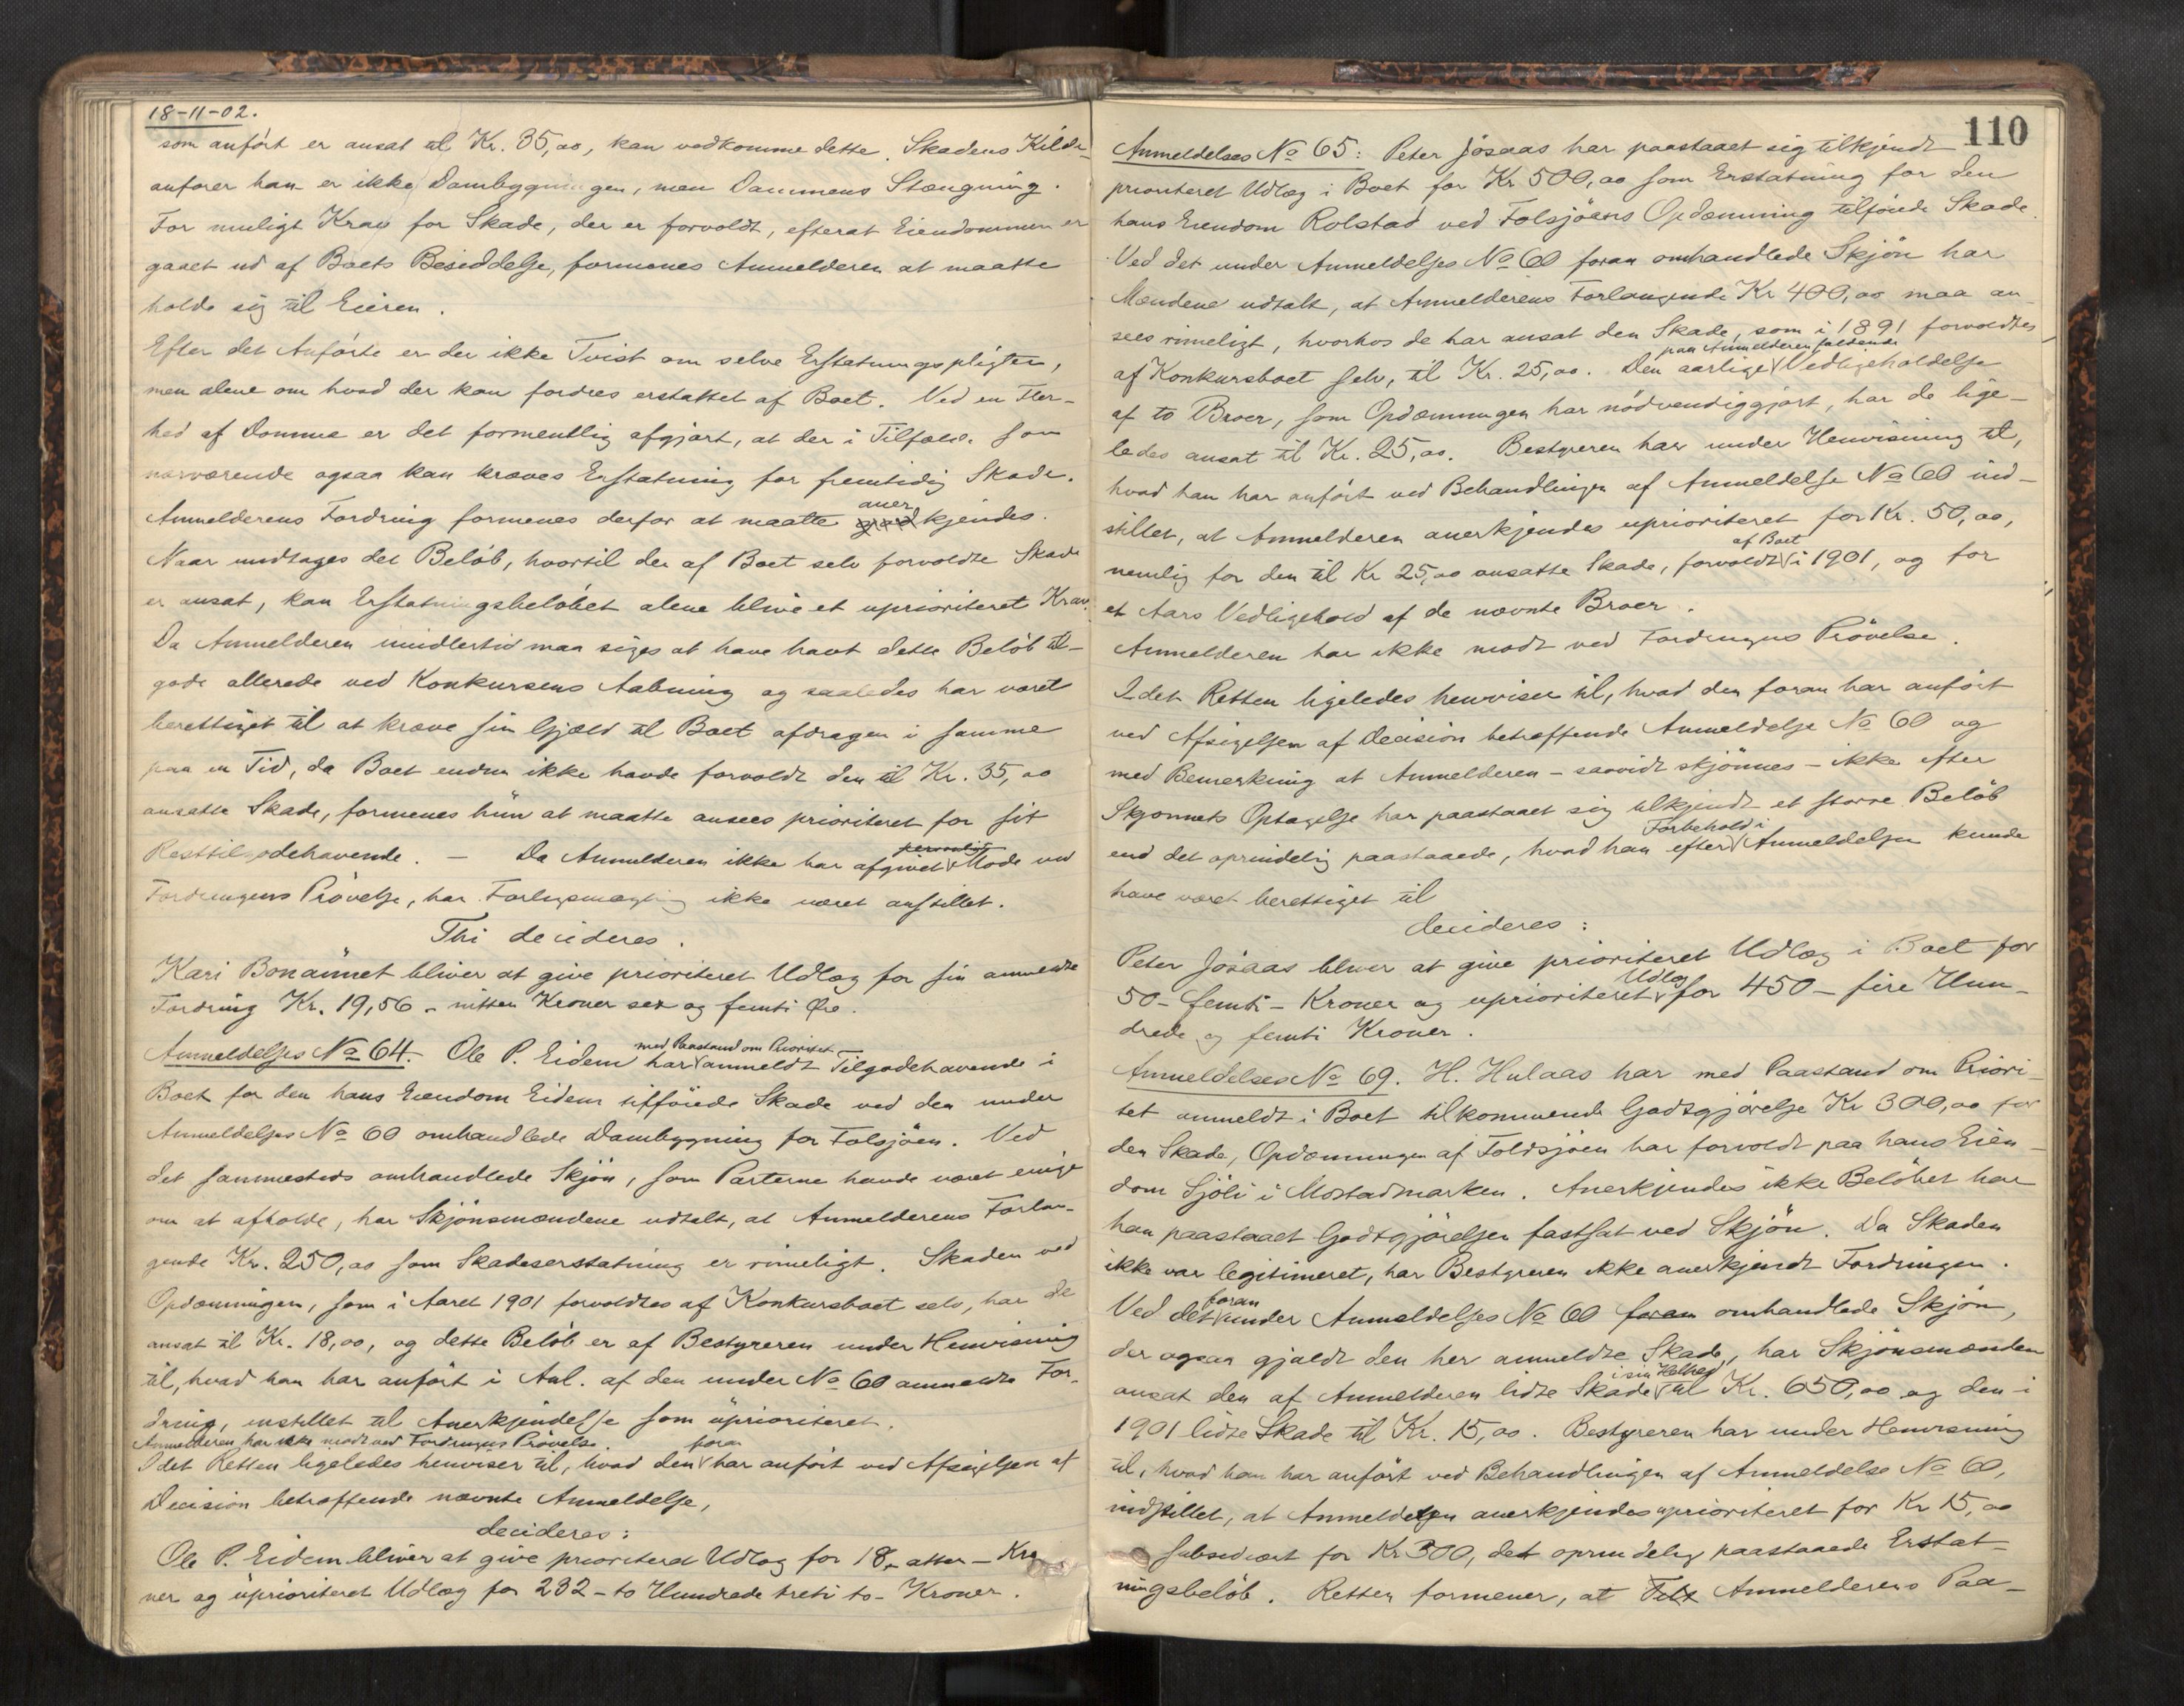 18-11-02.
som anført er ansat til Kr. 35,00, kan vedkomme dette. Skadens Kilde
anfører han er ikke Dambygningen, men Dammens Stængning.
For muligt Krav for Skade, der er forvoldt, efterat Eiendommen er
gaaet ud af Boets Besiddelse, formenes Anmelderen at maatte
holde sig til Eieren.
Efter det Anførte er der ikke Tvist om selve Erstatningspligten,
men alene om hvad der kan fordres erstattet af Boet. Ved en Fler-
hed af Domme er det formentlig afgjort, at der i Tilfælde som
nærværende ogsaa kan kræves Erstatning for fremtidig Skade.
Anmelderens Fordring formenes derfor at maatte aner kjendes.
Naar undtages det Beløb, hvortil den af Boet selv forvoldte Skade
er ansat, kan Erstatningsbeløbet alene blive et uprioriteret Krav.
Da Anmelderen imidlertid maa siges at have havt dette Beløb til-
gode allerede ved Konkursens Aabning og saaledes har været
berettiget til at kræve sin Gjæld til Boet afdragen i samme
paa en Tid, da Boet endnu ikke havde forvoldt den til Kr. 35,00
ansatte Skade, formenes hun at maatte ansees prioriteret for sit
Resttilgodehavende. — Da Anmelderen ikke har afgivet personligt Møde ved
Fordringens Prøvelse, har Forligsmægling ikke været anstillet.
Thi decideres.
Kari Bonaunet bliver at give prioriteret Udlæg for sin anmeldte
Fordring Kr. 19,56 - nitten Kroner sex og femti Øre.
Anmeldelses No 64. Ole P. Eidem har med Paastand om Prioritet anmeldt Tilgodehavende i
Boet for den hans Eiendom Eidem tilføiede Skade ved den under
Anmeldelses No 60 omhandlede Dambygning for Folsjøen. Ved
det sammesteds omhandlede Skjøn, som Parterne havde været enige
om at afholde, har Skjønsmændene udtalt, at Anmelderens Forlan-
gende Kr. 250,00 som Skadeserstatning er rimeligt. Skaden ved
Opdæmningen, som i Aaret 1901 forvoldtes af Konkursboet selv, har de
ansat til Kr. 18,00, og dette Beløb er af Bestyreren under Henvisning
til, hvad han har anført i Anl. af den under No 60 anmeldte For-
dring, instillet til Anerkjendelse som uprioriteret.
Anmelderen har ikke mødt ved Fordringens Prøvelse.
Idet Retten ligeledes henviser til, hvad den foran har anført ved Afsigelsen af
Decision betræffende nævnte Anmeldelse,
decideres:
Ole P. Eidem bliver at give prioriteret Udlæg for 18 - atten - Kro
ner og uprioriteret Udlæg for 232 - to Hundrede treti to - Kroner.
110
Anmeldelses No 65: Peter Jøsaas har paastaaet sig tilkjendt
prioriteret Udlæg i Boet for Kr 500,00 som Erstatning for den
hans Eiendom Rolstad ved Folsjøens Opdæmning tilføiede Skade.
Ved det under Anmeldelses No 60 foran omhandlede Skjøn har
Mændene udtalt, at Anmelderens Forlangende Kr 400,00 maa an-
sees rimeligt, hvorhos de har ansat den Skade, som i 1891 forvoldtes
af Konkursboet selv, til Kr. 25,00. Den aarlige paa Anmelderen faldende Vedligeholdelse
af to Broer, som Opdæmningen har nødvendiggjort, har de lige-
ledes ansat til Kr. 25,00. Bestyreren har under Henvisning til,
hvad han har anført ved Behandlingen af Anmeldelse No 60 ind-
stillet, at Anmelderen anerkjendes uprioriteret for Kr. 50,00,
nemlig for den til Kr 25,00 ansatte Skade, forvoldt af Boet i 1901, og for
et Aars Vedligehold af de nævnte Broer.
Anmelderen har ikke mødt ved Fordringens Prøvelse.
Idet Retten ligeledes henviser til, hvad den foran har anført
ved Afsigelsen af Decision betræffende Anmeldelse No 60 og
med Bemerkning at Anmelderen - saavidt skjønnes - ikke efter
Skjønnets Optagelse har paastaaet sig tilkjendt et større Beløb
end det oprindelig paastaaede, hvad han efter Forbehold i Anmeldelsen kunde
have været berettiget til
decideres:
Peter Jøsaas bliver at give prioriteret Udlæg i Boet for
50 - femti - Kroner og uprioriteret Udlæg for 450 - fire Hun-
drede og femti Kroner.
Anmeldelses No 69. H. Hulaas har med Paastand om Priori-
tet anmeldt i Boet tilkommende Godtgjørelse Kr 300,00 for
den Skade, Opdæmningen af Foldsjøen har forvoldt paa hans Eien-
dom Sjøli i Mostadmarken. Anerkjendes ikke Beløbet har
han paastaaet Godtgjørelsen fastsat ved Skjøn. Da Skaden
ikke var legitimeret, har Bestyreren ikke anerkjendt Fordringen.
Ved det foran under Anmeldelses No 60 foran omhandlede Skjøn,
der ogsaa gjaldt den her anmeldte Skade, har Skjønsmændene
ansat den af Anmelderen lidte Skade i sin Helhed til Kr. 650,00 og den i
1901 lidte Skade til Kr. 15,00. Bestyreren har under Henvisning
til, hvad han har anført ved Behandlingen af Anmeldelse No 60,
indstillet, at Anmeldelsen anerkjendes uprioriteret for Kr 15,00
subsidiært for Kr 300, det oprindelig paastaaede Erstat-
ningsbeløb. Retten formener, at Anmelderens Paa-